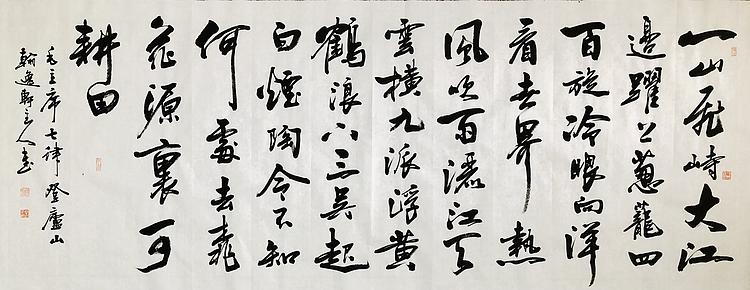 一山飛峙大江
邊躍上蔥蘢四
百旋冷眼向洋
看世界熱
風吹雨灑江天
雲橫九派浮黃
鶴浪下三吳起
白煙陶令不知
何處去桃
花源裏可
耕田
毛主席七律登廬山
翰逸軒主人書